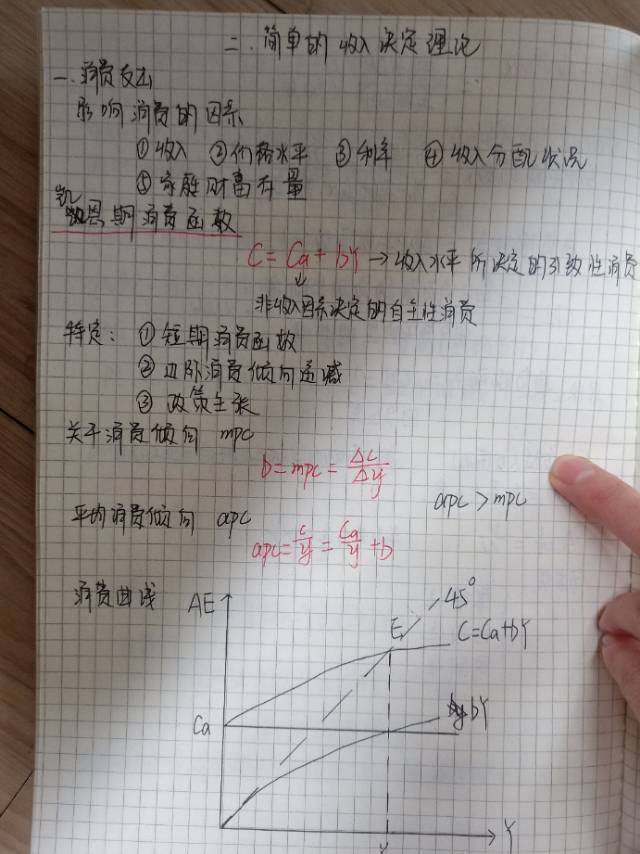 二.简单的收入决定理论
一.消费方法
影响消费的因素
①收入 ②价格水平 ③利率 ④收入分配状况
⑤家庭财富存量
凯恩斯消费函数
C=Ca+bY→收入水平所决定的引致性消费
↓
非收入因素决定的自主性消费
特定：①短期消费函数
②边际消费倾向递减
③政策主张
关于消费倾向 mpc
b=mpc=Δc/Δy
apc>mpc
平均消费倾向 apc
apc=c/y=Ca/y+b
消费曲线 AE
45°
E
C=Ca+bY
Ca
bY
Y